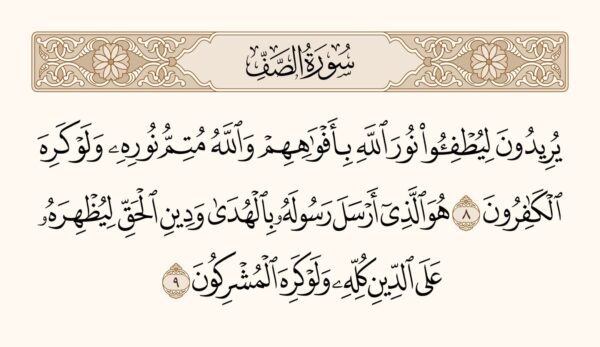 سُورَةُ الصَّفِّ
يُرِيدُونَ لِيُطْفِـُٔوا۟ نُورَ ٱللَّهِ بِأَفْوَٰهِهِمْ وَٱللَّهُ مُتِمُّ نُورِهِۦ وَلَوْ كَرِهَ
ٱلْكَٰفِرُونَ ٨ هُوَ ٱلَّذِىٓ أَرْسَلَ رَسُولَهُۥ بِٱلْهُدَىٰ وَدِينِ ٱلْحَقِّ لِيُظْهِرَهُۥ
عَلَى ٱلدِّينِ كُلِّهِۦ وَلَوْ كَرِهَ ٱلْمُشْرِكُونَ ٩